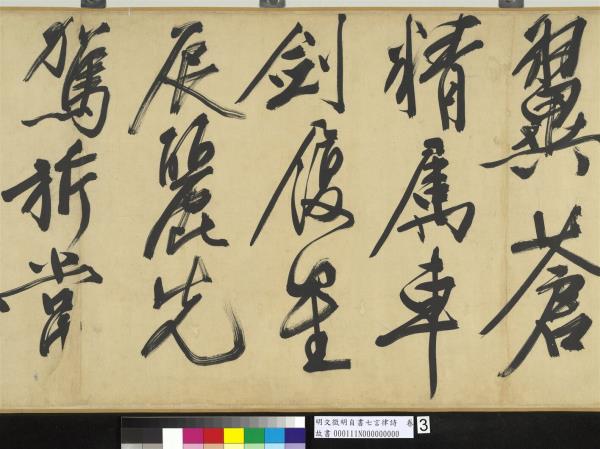 翼蒼
精屬車
劍履星
辰麗先
駕旂常
明文徵明自書七言律詩 卷
故書 000111N000000000
3